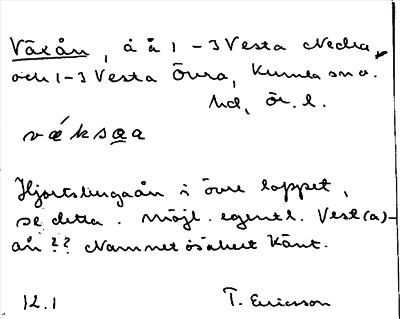 Växån, å å 1-3 Vesta Nedra,
och 1-3 Vesta Övra, Kumla sn o.
hd, Ör. l.
væ´ksa̲a
Hjortsbergaån i övre loppet,
se detta. Möjl. egentl. Vest(a)-
ån?? Namnet osäkert känt.
12.1 T. Ericsson